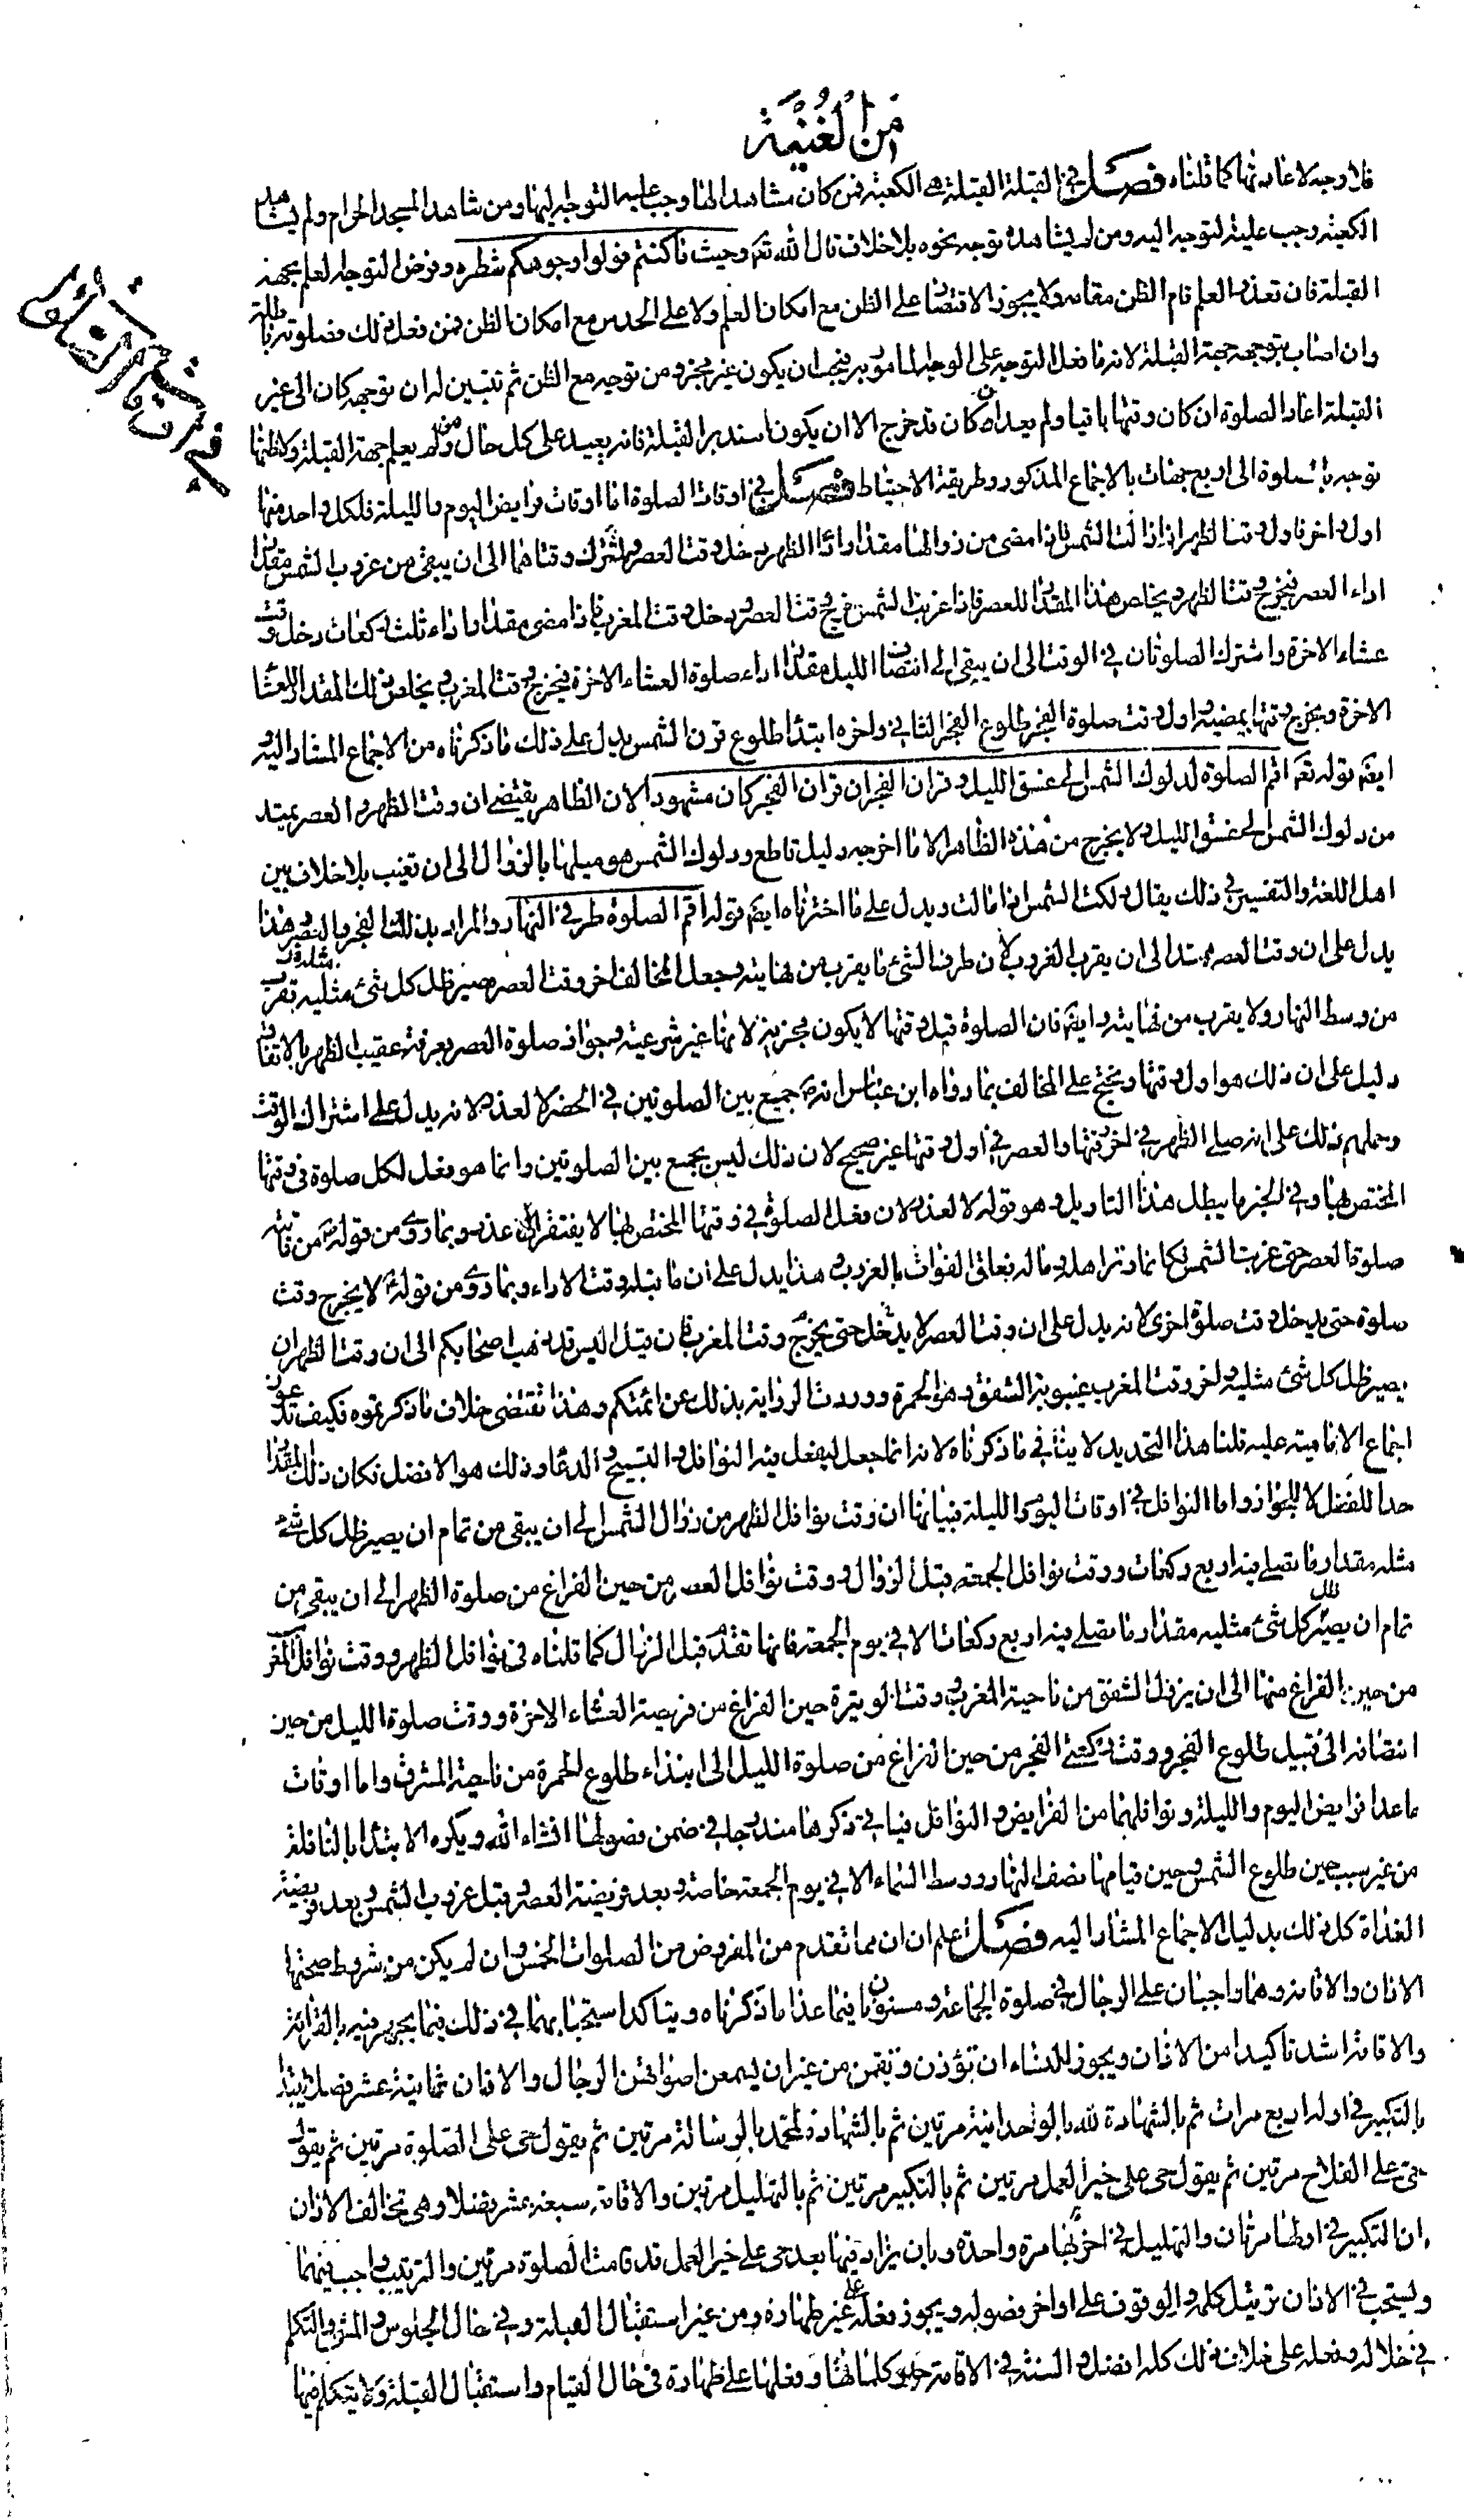 من الغنية
فلا وجه لاعادتها كما قلناه فصل في القبلة القبلة هي الكعبة فمن كان مشاهدا لها وجب عليه التوجه اليها ومن شاهد المسجد الحرام ولم يشاهد
الكعبة وجب عليه التوجه اليه ومن لم يشاهده توجه نحوه بلا خلاف قال الله تعم وحيث ما كنتم فولوا وجوهكم شطره وفرض التوجه العلم بجهة
القبلة فان تعذر العلم قام الظن مقامه ولا يجوز الاقتصار على الظن مع امكان العلم ولا على الحدس مع امكان الظن فمن فعل ذلك فصلوته باطلة
وان اصاب بتوجهه جهة القبلة لانه ما فعل التوجه على الوجه المامور به فيجب ان يكون غير مجز ومن توجه مع الظن ثم تبين له ان توجهه كان الى غير
القبلة اعاد الصلوة ان كان وقتها باقيا ولم يعد ان كان قد خرج الا ان يكون استدبر القبلة فانه يعيد على كل حال ومن لم يعلم جهة القبلة ولا ظنها
توجه بالصلوة الى اربع جهات بالاجماع المذكور وطريقة الاحتياط فصل في اوقات الصلوة اما اوقات فرايض اليوم والليلة فلكل واحد منها
اول واخر فاول وقت الظهر اذا زالت الشمس فاذا مضى من زوالها مقدار اداء الظهر دخل وقت العصر واشترك وقتاهما الى ان يبقى من غروب الشمس مقدار
اداء العصر فيخرج وقت الظهر ويخلص هذا المقدار للعصر فاذا غربت الشمس خرج وقت العصر ودخل وقت المغرب فاذا مضى مقدار اداء ثلث ركعات دخل وقت
عشاء الاخرة واشترك الصلوتان في الوقت الى ان يبقى الى انتصاف الليل مقدار اداء صلوة العشاء الاخرة فيخرج وقت المغرب ويخلص ذلك المقدار للعشاء
الاخرة ويخرج وقتها بمضيه واول وقت صلوة الفجر طلوع الفجر الثاني واخره ابتداء طلوع قرن الشمس يدل على ذلك ما ذكرناه من الاجماع المشار اليه و
ايضم قوله تعم اقم الصلوة لدلوك الشمس الى غسق الليل وقران الفجر ان قران الفجر كان مشهودا لان الظاهر يقتضى ان وقت الظهر والعصر يمتد
من دلوك الشمس الى غسق الليل ولا يخرج من هذه الظاهر الا ما اخرجه دليل قاطع ودلوك الشمس هو ميلها بالزوال الى ان تغيب بلا خلاف بين
اهل اللغة والتفسير في ذلك يقال دلكت الشمس اذا مالت ويدل على ما اخترناه ايضم قوله اقم الصلوة طرفي النهار والمراد بذلك الفجر والعصر وهذا
يدل على ان وقت العصر ممتد الى ان يقرب الغروب لان طرف الشئ ما يقرب من نهايته وجعل المخالف اخر وقت العصر مصير ظل كل شئ مثليه يقرب
من وسط النهار ولا يقرب من نهايته وايضم فان الصلوة قبل وقتها لا يكون مجزية لانها غير شرعية وجواز صلوة العصر بعرفة عقيب الظهر بالاتفاق
دليل على ان ذلك هو اول وقتها ويحتج على المخالف بما رواه ابن عباس انه ص جمع بين الصلوتين في الحضر لا لعذر لانه يدل على اشتراك الوقت
وحملهم ذلك على انه صلى الظهر في اخر وقتها والعصر في اول وقتها غير صحيح لان ذلك ليس بجمع بين الصلوتين وانما هو فعل لكل صلوة في وقتها
المختص بها وفي الخبر ما يبطل هذا التاويل وهو قوله لا لعذر لان فعل الصلوة في وقتها المختص بها لا يفتقر الى عذر وبما روى من قوله ص من فاتته
صلوة العصر حتى غربت الشمس فكانما وتر اهله وماله فعلق الفوات بالغروب وهذا يدل على ان ما قبله وقت الاداء وبما روى من قوله لا يخرج وقت
صلوة حتى يدخل وقت صلوة اخرى لانه يدل على ان وقت العصر لا يدخل حتى يخرج وقت المغرب فان قيل اليس قد ذهب اصحابكم الى ان وقت الظهر ان
يصير ظل كل شئ مثليه واخر وقت المغرب غيبوبة الشفق وهو الحمرة ووردت الرواية بذلك عن ائمتكم وهذا يقتضى خلاف ما ذكرتموه فكيف تدعون
اجماع الامامية عليه قلنا هذا التحديد لا ينافي ما ذكرناه لانه انما جعل ليفعل فيه النوافل والتسبيح والدعاء وذلك هو الافضل فكان ذلك المقدار
حدا للفضل لا للجواز واما النوافل في اوقات اليوم والليلة فبيانها ان وقت نوافل الظهر من زوال الشمس الى ان يبقى من تمام ان يصير ظل كل شئ
مثله مقدار ما يصلى فيه اربع ركعات ووقت نوافل الجمعة قبل الزوال ووقت نوافل العصر من حين الفراغ من صلوة الظهر الى ان يبقى من
تمام ان يصير ظل كل شئ مثليه مقدار ما يصلى فيه اربع ركعات الا في يوم الجمعة فانها تقدم قبل الزوال كما قلناه في نوافل الظهر ووقت نوافل المغرب
من حين الفراغ منها الى ان يزول الشفق من ناحية المغرب ووقت الوتيرة حين الفراغ من فريضة العشاء الاخرة ووقت صلوة الليل من حين
انتصافه الى قبيل طلوع الفجر ووقت ركعتي الفجر من حين الفراغ من صلوة الليل الى ابتداء طلوع الحمرة من ناحية المشرق واما اوقات
ما عدا فرايض اليوم والليلة ونوافلهما من الفرايض والنوافل فياتي ذكرها مندرجا في ضمن فصولها انشاء الله ويكره الابتداء بالنافلة
من غير سبب حين طلوع الشمس وحين قيامها نصف النهار ووسط السماء الا في يوم الجمعة خاصة وبعد فريضة العصر وقبل غروب الشمس وبعد فريضة
الغداة كل ذلك بدليل الاجماع المشار اليه فصل اعلم ان مما تقدم من المفروض من الصلوات الخمس وان لم يكن من شروط صحتها
الاذان والاقامة وهما واجبان على الرجال في صلوة الجماعة ومسنونان فيما عدا ما ذكرناه ويتاكد استحبابهما في ذلك فيما يجهر فيه بالقرائة
والاقامة اشد تاكيدا من الاذان ويجوز للنساء ان تؤذن وتقمن من غير ان يسمعن اصواتهن الرجال والاذان ثمانية عشر فصلا يبتدا
بالتكبير في اوله اربع مرات ثم بالشهادة لله بالوحدانية مرتين ثم بالشهادة لمحمد بالرسالة مرتين ثم يقول حى على الصلوة مرتين ثم يقول
حى على الفلاح مرتين ثم يقول حى على خير العمل مرتين ثم بالتكبير مرتين ثم بالتهليل مرتين والاقامة سبعة عشر فصلا وهى تخالف الاذان
بان التكبير في اولها مرتان والتهليل في اخرها مرة واحدة وبان يزاد فيها بعد حى على خير العمل قد قامت الصلوة مرتين والترتيب واجب فيهما
ويستحب في الاذان ترتيل كلمه والوقوف على اواخر فصوله ويجوز فعله على غير طهارة ومن غير استقبال القبلة وفي حال الجلوس والمشى والتكلم
في خلاله وفعله على خلاف ذلك كله افضل والسنة في الاقامة حدر كلماتها وفعلها على طهارة في حال القيام واستقبال القبلة ولا يتكلم فيها